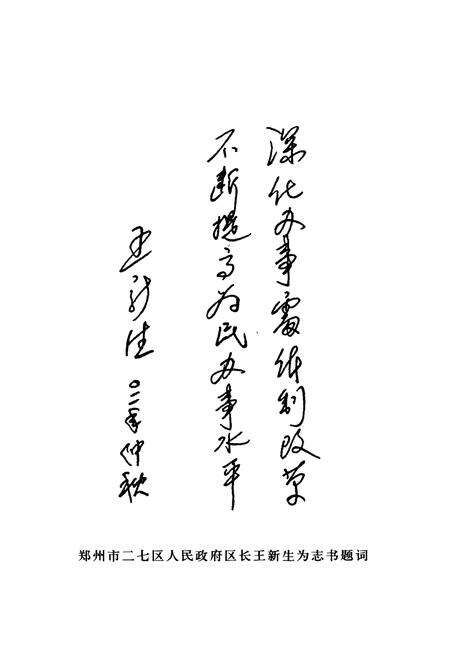 深化办事處体制改革
不断提高为民办事水平
王新生
年仲秋
郑州市二七区人民政府区长王新生为志书题词